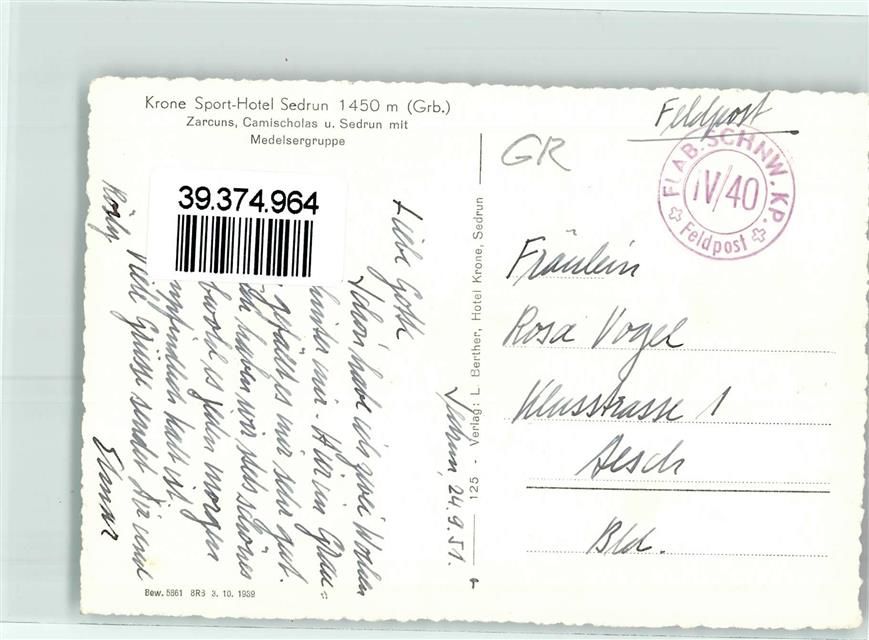 Krone Sport-Hotel Sedrun 1450 m (Grb.)
Zarcuns, Camischolas u. Sedrun mit
Medelsergruppe
39.374.964
Sedrun, 24.9.51.
Liebe Gotte
Schon habe ich zwei Wochen
hinter mir. Hier im Grau-
gefällt es mir sehr gut.
haben wir schönes
obwohl es jeden morgen
empfindlich kalt ist.
Viele Grüsse sendet Dir und
Rösly
Bew. 5861 BRB 3. 10. 1939
125 - Verlag: L. Berther, Hotel Krone, Sedrun
GR
Feldpost
FLAB.SCHNW.KP.
IV/40
Feldpost
Fräulein
Rosa Vogel
Klusstrasse 1
Aesch
Bld.